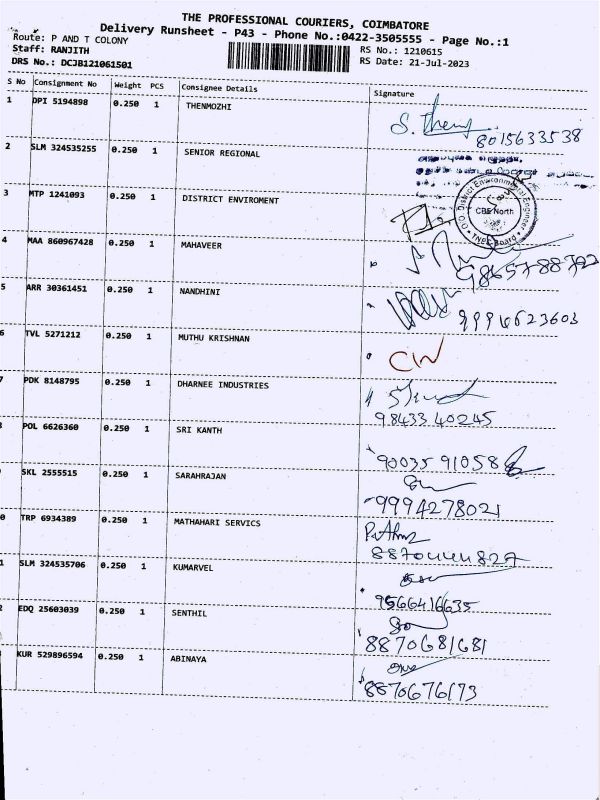 THE PROFESSIONAL COURIERS, COIMBATORE
Delivery Runsheet - P43 - Phone No.:0422-3505555 - Page No.:1
Route: P AND T COLONY
Staff: RANJITH
DRS No.: DCJB121061501
RS No.: 1210615
RS Date: 21-Jul-2023
S No Consignment No Weight PCS Consignee Details Signature
1 DPI 5194898 0.250 1 THENMOZHI
8015633538
2 SLM 324535255 0.250 1 SENIOR REGIONAL
3 MTP 1241093 0.250 1 DISTRICT ENVIROMENT
District Environmental Engineer
CBE North
4 MAA 860967428 0.250 1 MAHAVEER
5 ARR 30361451 0.250 1 NANDHINI
6 TVL 5271212 0.250 1 MUTHU KRISHNAN
7 PDK 8148795 0.250 1 DHARNEE INDUSTRIES
98433 40245
POL 6626360 0.250 1 SRI KANTH
90035 91058
SKL 2555515 0.250 1 SARAHRAJAN
9994278021
0 TRP 6934389 0.250 1 MATHAHARI SERVICS
1 SLM 324535706 0.250 1 KUMARVEL
9566416635
2 EDQ 25603039 0.250 1 SENTHIL
8870681681
KUR 529896594 0.250 1 ABINAYA
8870676173